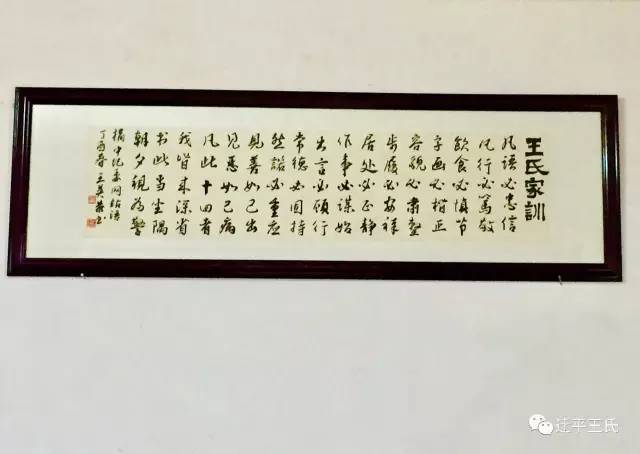 王氏家训
凡语必忠信
凡行必笃敬
飲食必慎节
字画必楷正
容貌必肃整
步履必安祥
居处必正静
作事必谋始
出言必顾行
常德必固持
然諾必重应
見善如己出
見悪如己病
凡此十四者
我皆未深省
书此当坐隅
朝夕视为警
摘中纪委网站语
丁酉春王英
平王氏